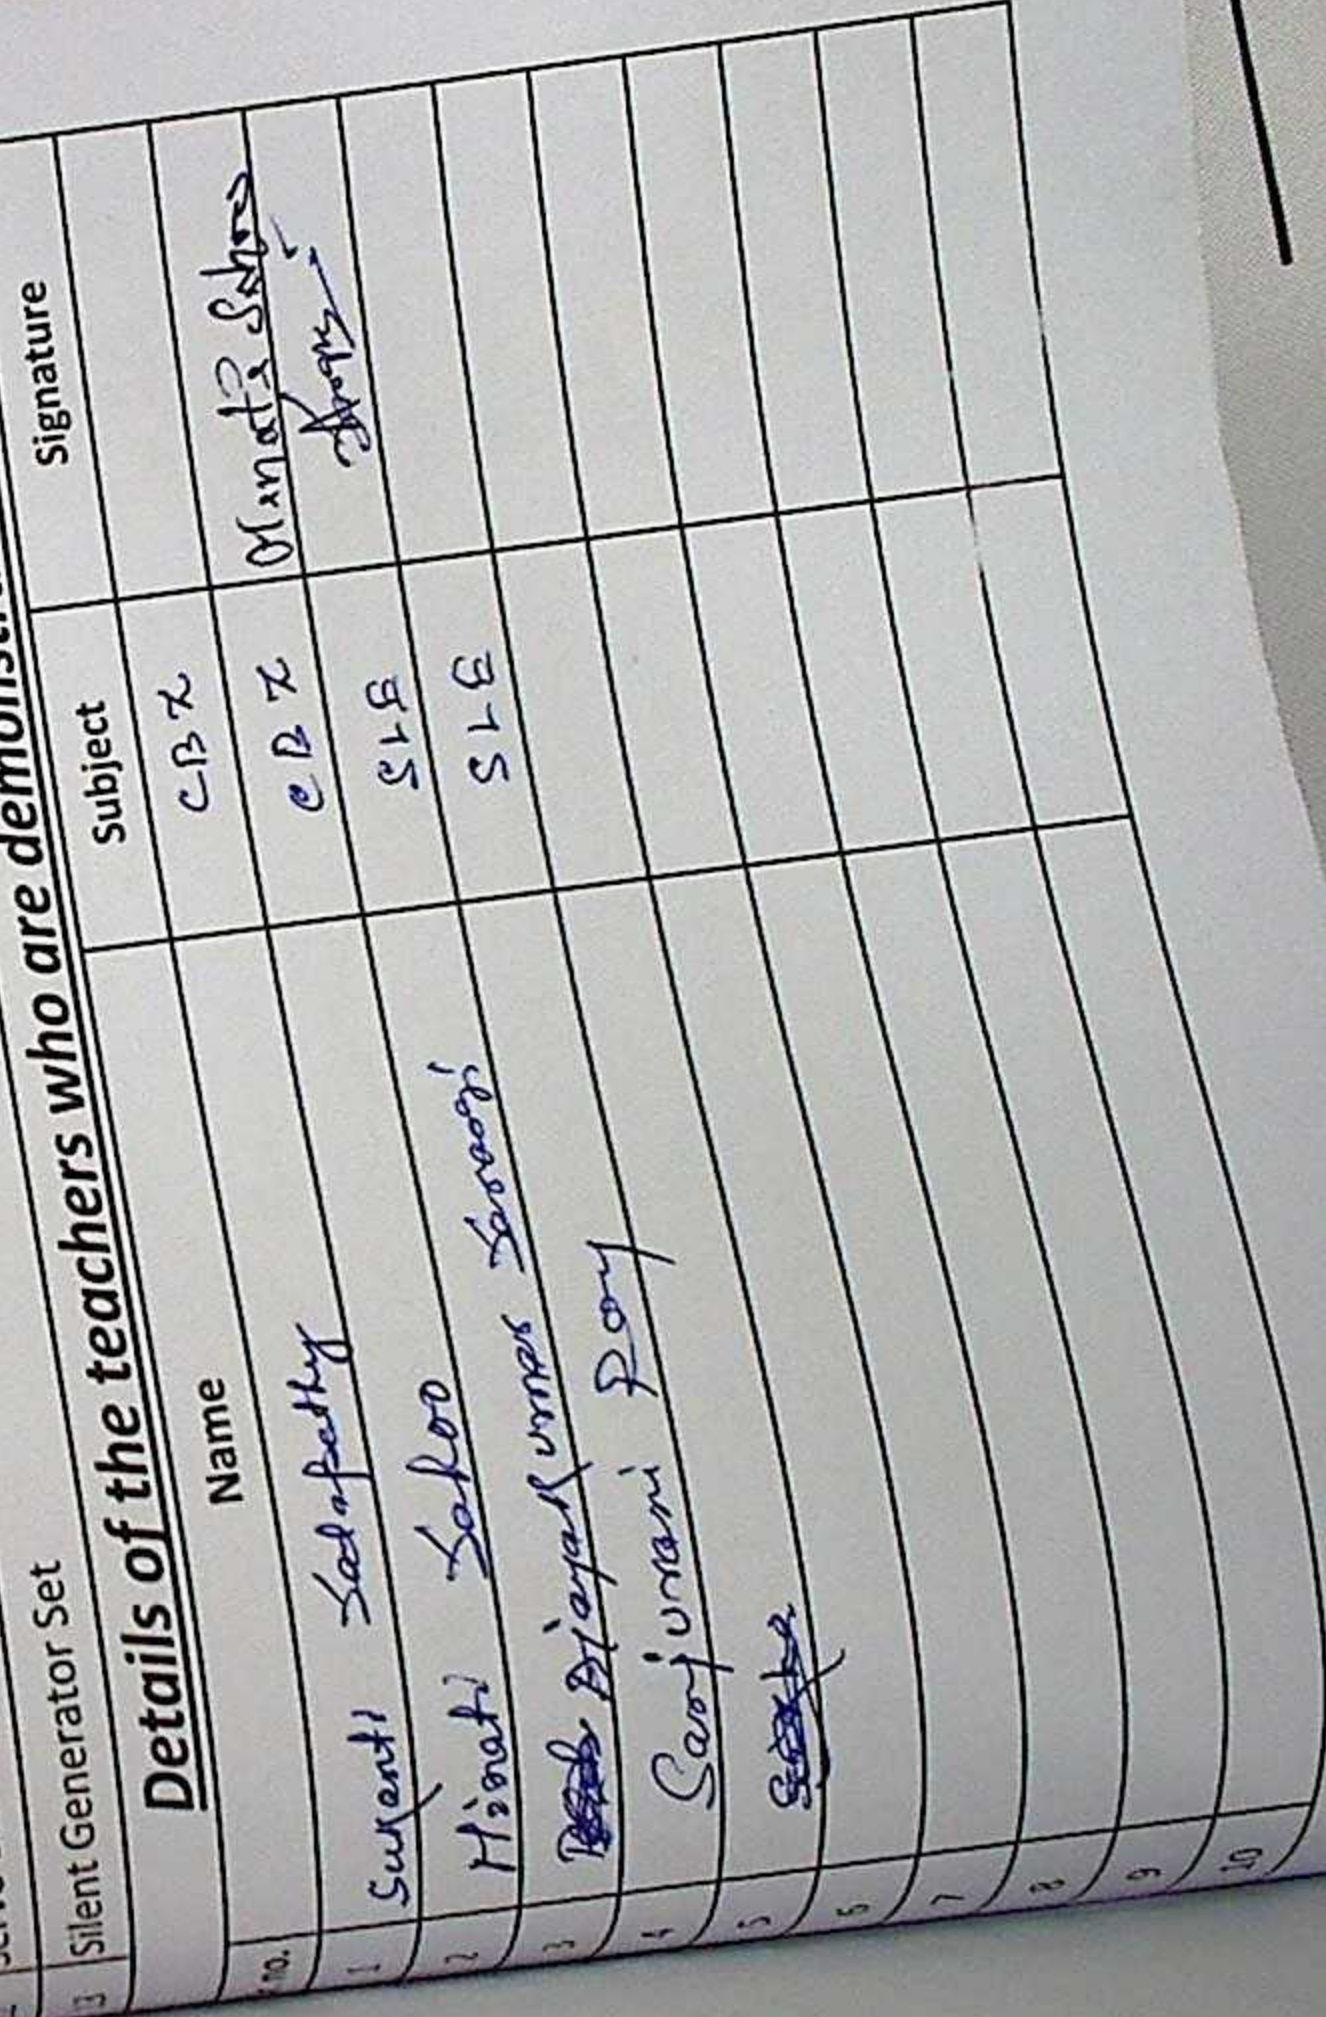 13 Silent Generator Set
Details of the teachers who are
no. Name Subject Signature
1 Sukanti Satapathy CBZ
2 Minati Sahoo CBZ Minati Sahoo
3 Bijaya Kumar Sarangi SLB
4 Sanjurani Roy SLB
5
6
7
8
9
10